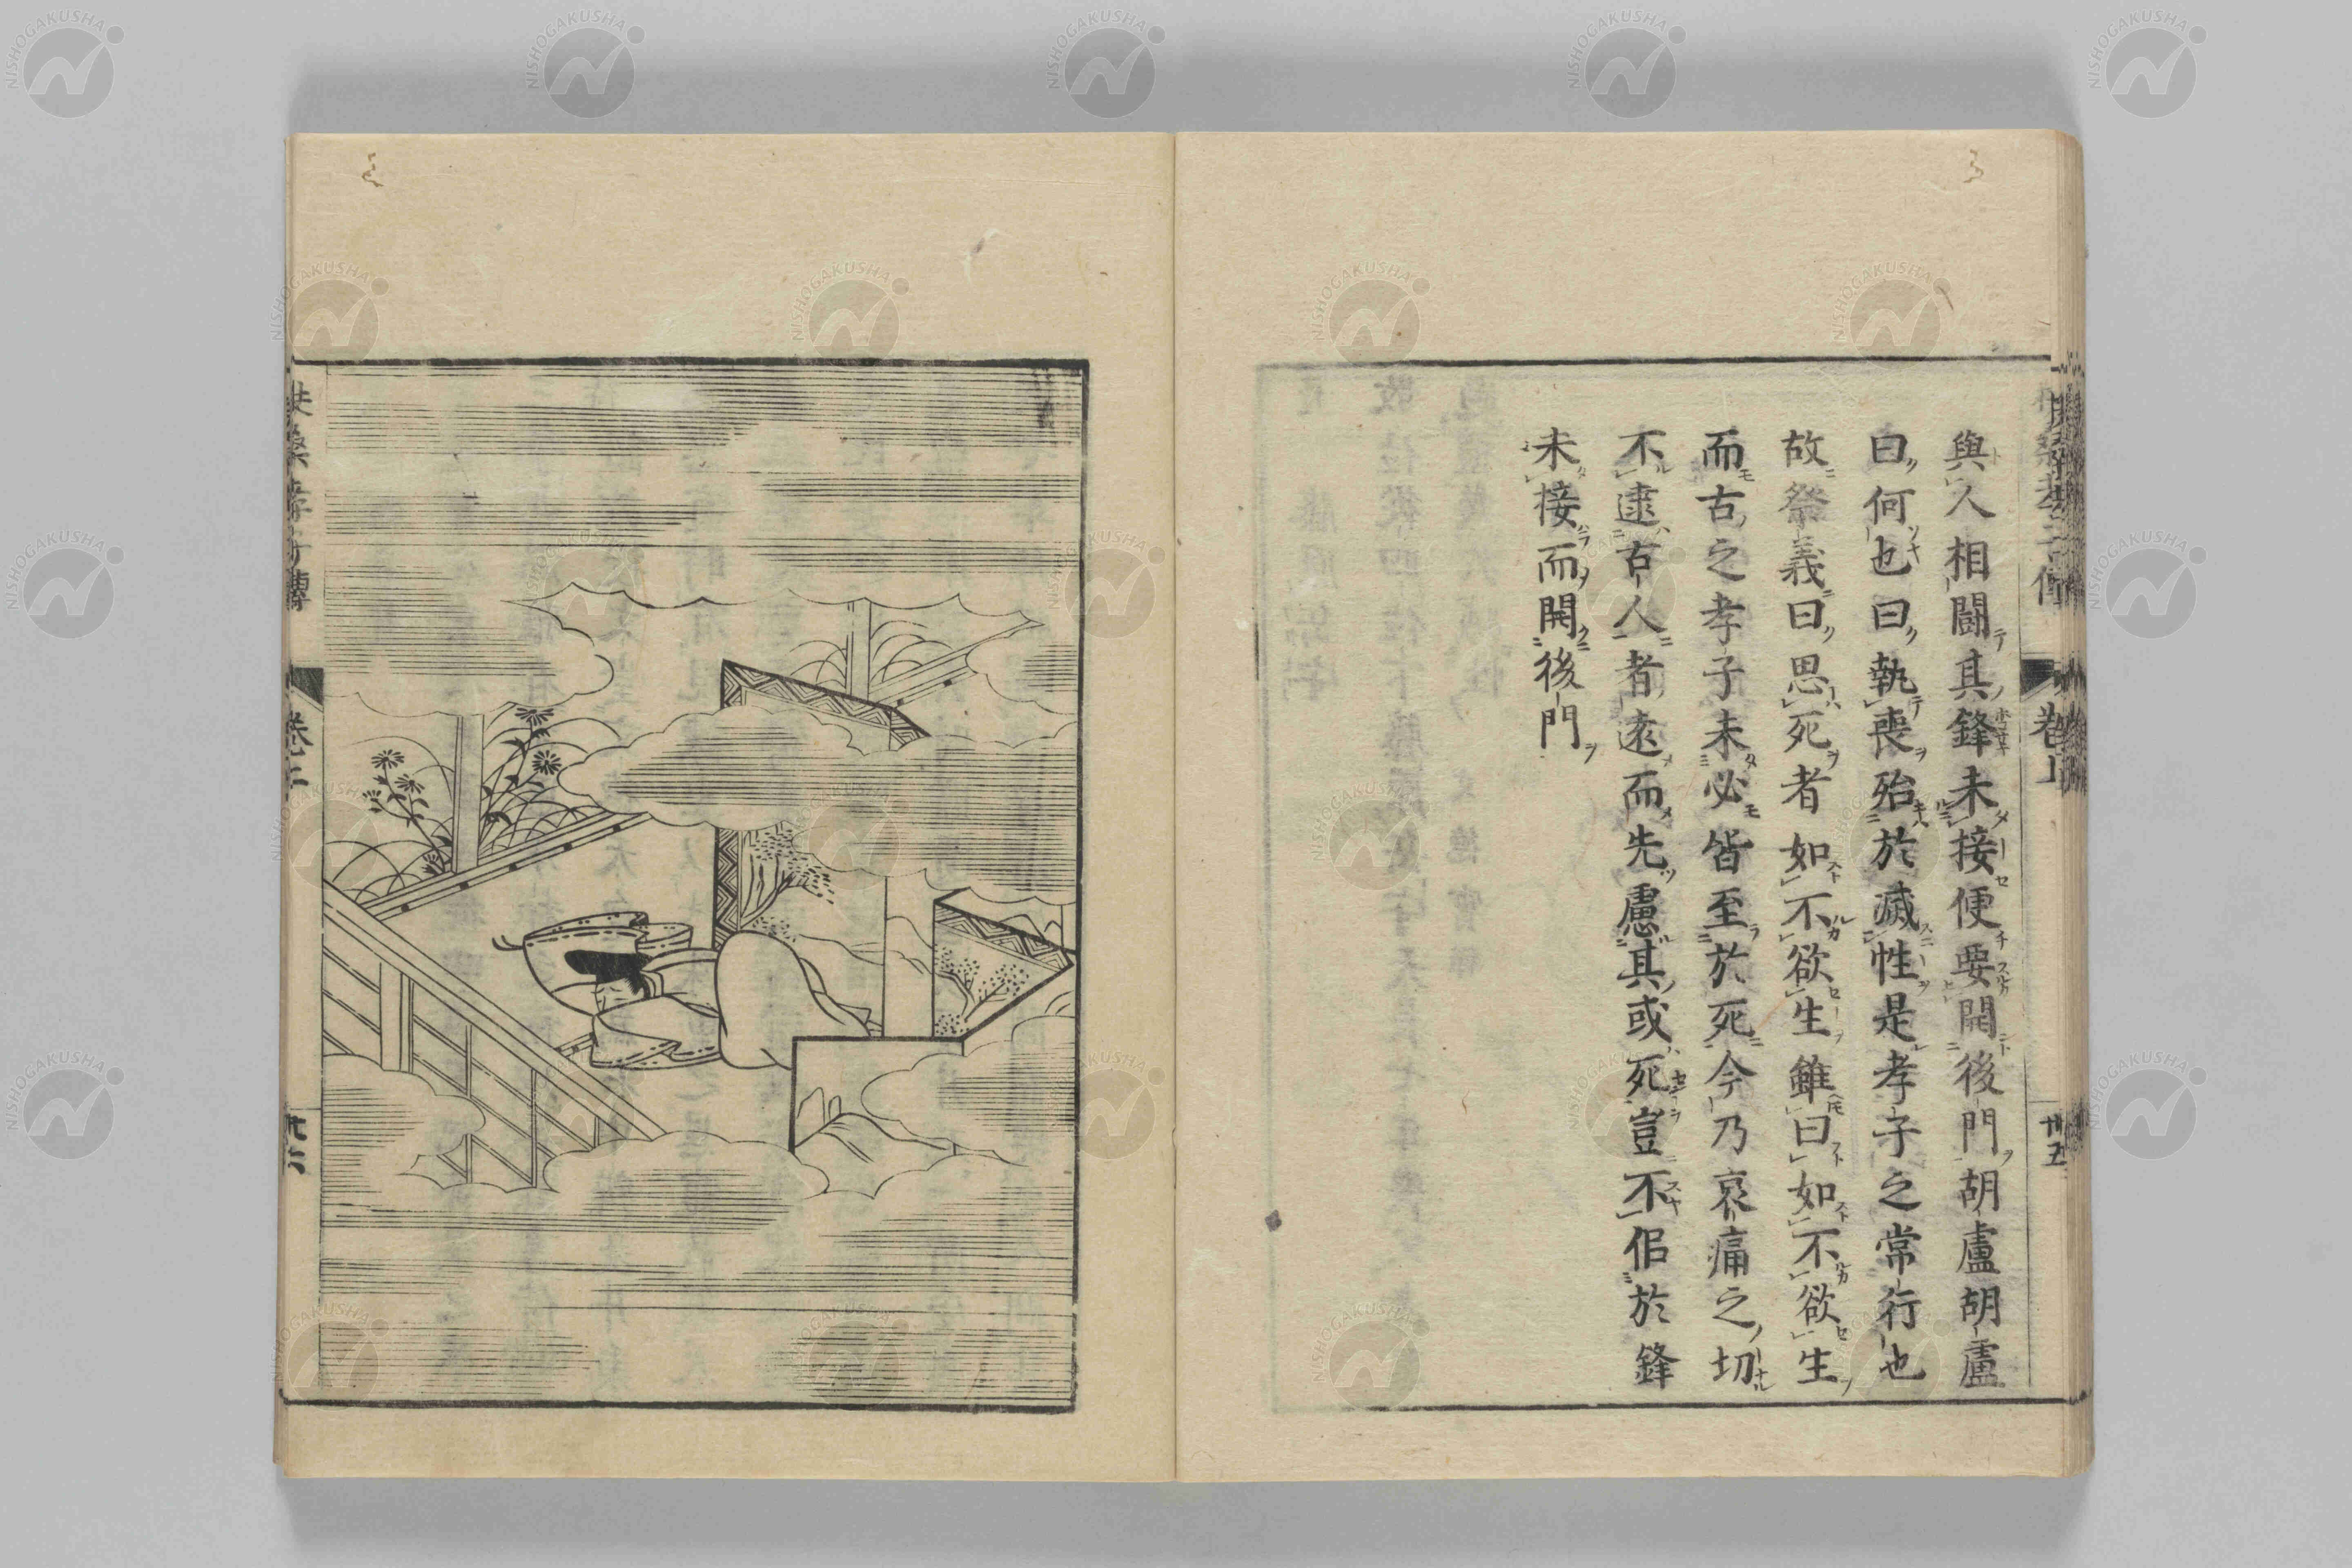 與人相闘其鋒未接便要開後門胡盧胡盧
曰何也曰執喪殆於滅性是孝子之常行也
故祭義曰思死者如不欲生雖曰如不欲生
而古之孝子未必皆至於死今乃哀痛之切
不逮古人者遠而先慮其或死豈不侶於鋒
未接而開後門
卷上
廿五
扶桑孝子傳
卷上
廿六
NISHOGAKUSHA